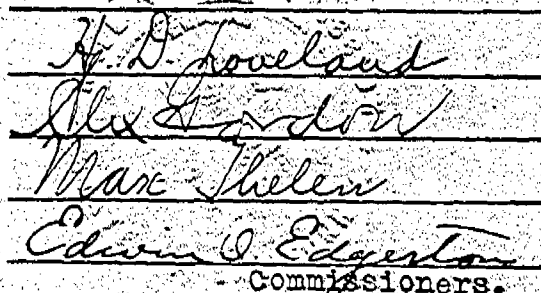 H. D. Loveland
Alex Gordon
Max Thelen
Edwin O. Edgerton
Commissioners.